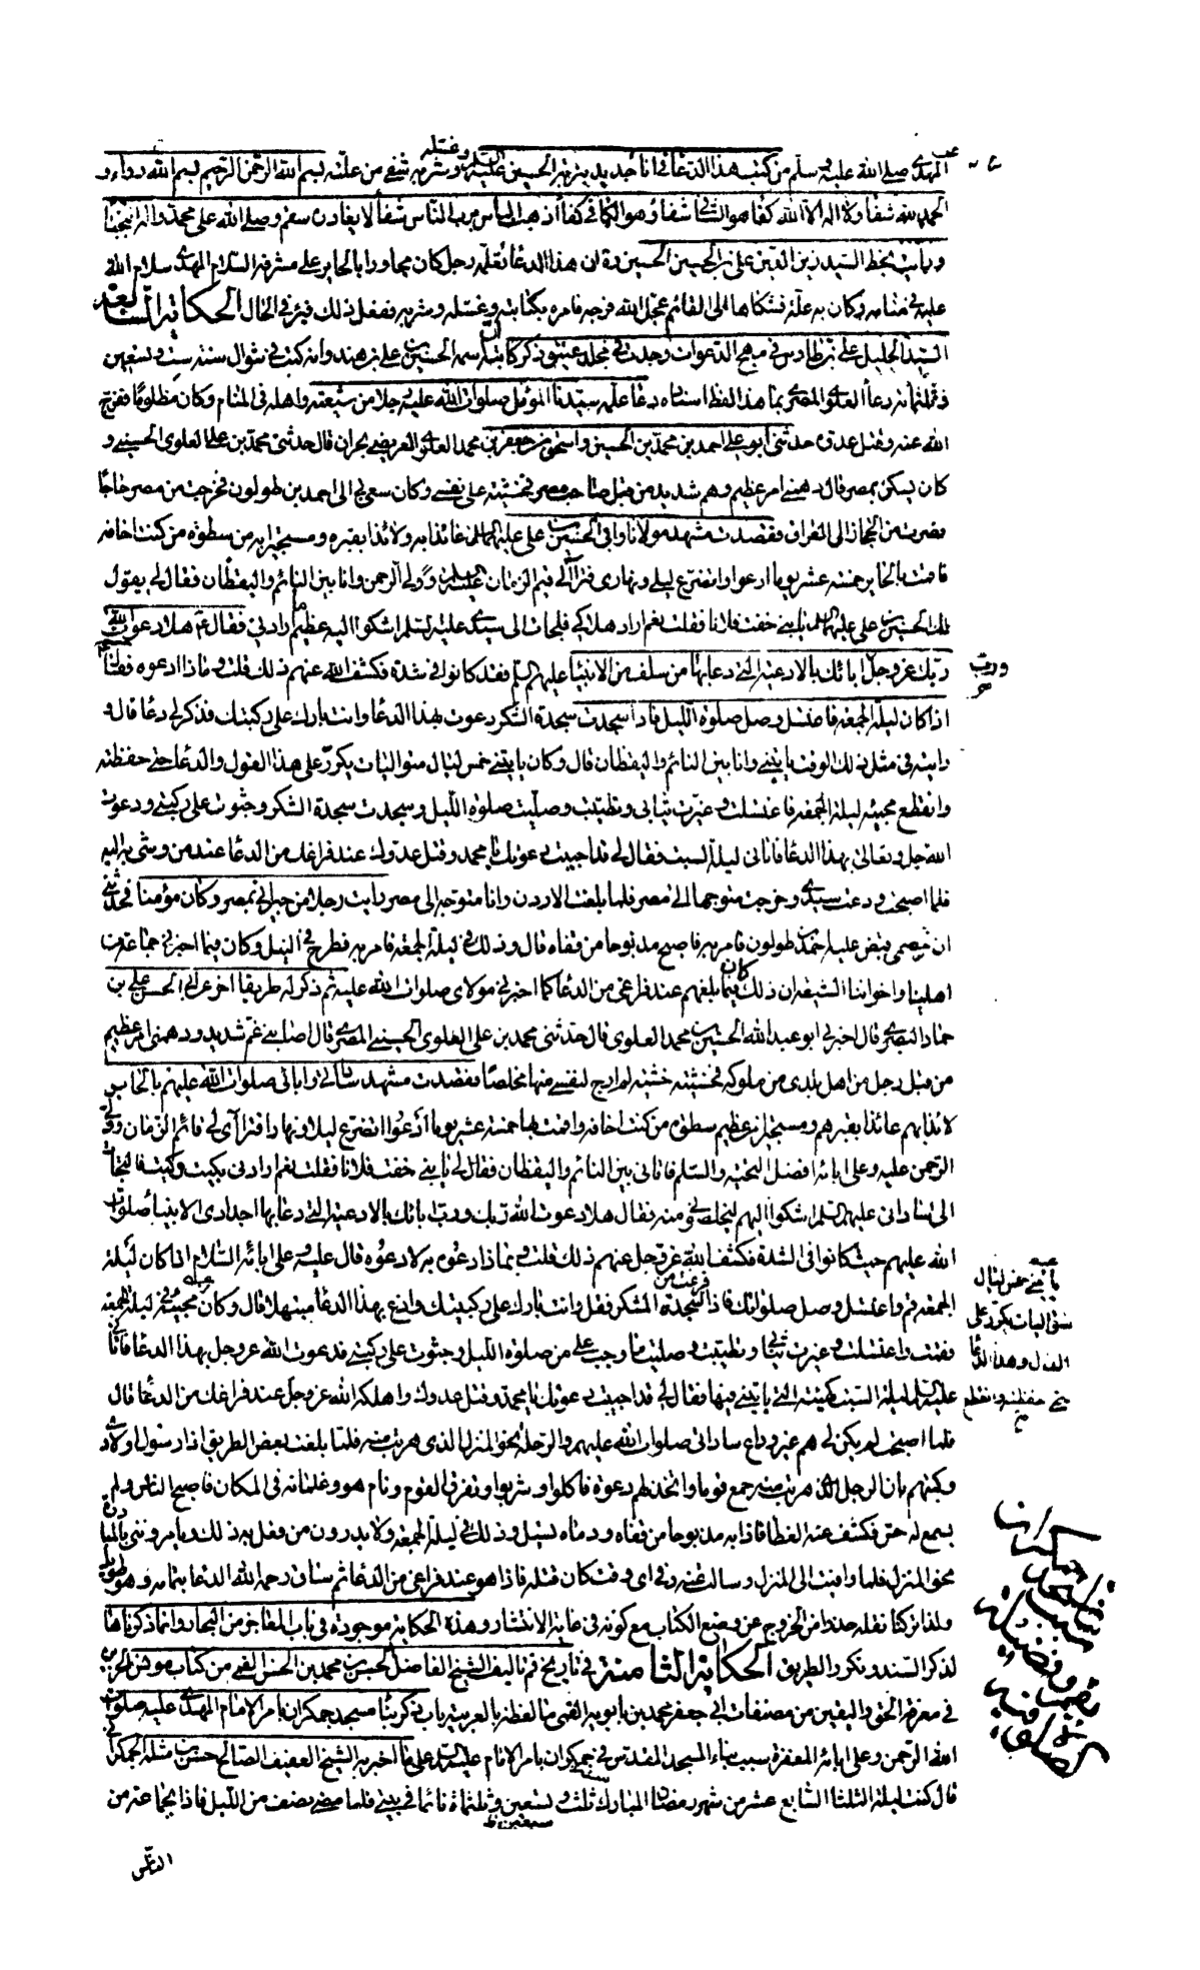 المهدي صلى الله عليه وسلم من كتب هذا الدعاء في اناء جديد بتربة الحسين عليه السلم وغسله وشربه شفي من علته بسم الله الرحمن الرحيم بسم الله دواء و
الحمد لله شفاء ولا اله الا الله كفاء هو الشافي شفاء وهو الكافي كفاء اذهب الباس برب الناس شفاء لا يغادر سقم وصلى الله على محمد واله النجباء
ورايت بخط السيد زين الدين علي بن الحسين الحسيني ره ان هذا الدعاء تعلمه رجل كان مجاورا بالحاير على مشرفه السلام المهدي سلام الله
عليه في منامه وكان به علة فشكاها الى القائم عجل الله فرجه فامره بكتابته وغسله وشربه ففعل ذلك فبرء في الحال الحكاية السابعة
السيد الجليل علي بن طاوس في مهج الدعوات وجدت في مجلد عتيق ذكر كاتبه ان اسمه الحسين بن علي بن هند وانه كتب في شوال سنة ست وتسعين
وثلثمائه دعاء العلوي المصري بما هذا لفظ اسناده دعاء علمه سيدنا المؤمل صلوات الله عليه رجلا من شيعته واهله في المنام وكان مظلوما ففرج
الله عنه وقتل عدوه حدثني ابو علي احمد بن محمد بن الحسين واسحق بن جعفر بن محمد العلوي العريضي بحران قال حدثني محمد بن علي العلوي الحسيني و
كان يسكن بمصر قال دهمني امر عظيم وهم شديد من قبل صاحب مصر فخشيته على نفسي وكان سعى بي الى احمد بن طولون فخرجت من مصر حاجا
فصرت من الحجاز الى العراق فقصدت مشهد مولانا وابي الحسين بن علي عليهما السلم عائذا به ولائذا بقبره ومستجيرا به من سطوة من كنت اخافه
فاقمت بالحاير خمسة عشر يوما ادعوا واتضرع ليلي ونهاري فتراآى لي قيم الزمان عليه السلم وولي الرحمن وانا بين النائم واليقظان فقال لي يقول
لك الحسين بن علي عليهما السلم يا بني خفت فلانا فقلت نعم اراد هلاكي فلجات الى سيدي عليه السلم اشكوا اليه عظيم ما اراد بي فقال ع هلا دعوت الله
ربك عز وجل ابائك بالادعية التي دعا بها من سلف من الانبياء عليهم السلم فقد كانوا في شدة فكشف الله عنهم ذلك قلت وماذا ادعوه فقال
اذا كان ليلة الجمعة فاغتسل وصل صلوة الليل فاذا سجدت سجدة الشكر دعوت بهذا الدعاء وانت بارك على ركبتيك فذكر لي دعاء قال و
رايته في مثل ذلك الوقت ياتيني وانا بين النائم واليقظان قال وكان ياتيني خمس ليال متواليات يكرر علي هذا القول والدعاء حتى حفظته
وانقطع مجيئه ليلة الجمعة فاغتسلت وغيرت ثيابي وتطيبت وصليت صلوة الليل وسجدت سجدة الشكر وجثوت على ركبتي ودعوت
الله جل وتعالى بهذا الدعاء فاتاني ليلة السبت فقال لي قد اجيبت دعوتك يا محمد وقتل عدوك عند فراغك من الدعاء عند من وشى به اليه
فلما اصبحت ودعت سيدي وخرجت متوجها الى مصر فلما بلغت الاردن وانا متوجه الى مصر رايت رجلا من جيراني بمصر وكان مؤمنا فحدثني
ان خصمي قبض عليه احمد بن طولون فامر به فاصبح مذبوحا من قفاه قال وذلك في ليلة الجمعة فامر به فطرح في النيل وكان فيما اخبرني جماعة من
اهلينا واخواننا الشيعه ان ذلك كان فيما بلغهم عند فراغي من الدعاء كما اخبرني مولاي صلوات الله عليه ثم ذكر له طريقا اخر عن ابي الحسن علي بن
حماد البصري قال اخبرني ابو عبد الله الحسين بن محمد العلوي قال حدثني محمد بن علي العلوي الحسيني المصري قال اصابني غم شديد ودهمني امر عظيم
من قبل رجل من اهل بلدي من ملوكه فخشيته خشية لم ارج لنفسي منها مخلصا فقصدت مشهد ساداتي وابائي صلوات الله عليهم بالحاير
لائذا بهم عائذا بقبرهم ومستجيرا من عظيم سطوة من كنت اخافه واقمت بها خمسة عشر يوما ادعوا واتضرع ليلا ونهارا فتراآى لي قائم الزمان وولي
الرحمن عليه وعلى ابائه افضل التحية والسلم فاتاني بين النائم واليقظان فقال لي يا بني خفت فلانا فقلت نعم ارادني بكيت وكيت فالتجات
الى ساداتي عليهم السلم اشكوا اليهم ليخلصوني منه فقال هلا دعوت الله ربك ورب ابائك بالادعية التي دعا بها اجدادي الانبياء صلوات
الله عليهم حيث كانوا في الشدة فكشف الله عز وجل عنهم ذلك قلت وبماذا دعوه به لادعوه قال عليه وعلى ابائه السلام اذا كان ليلة
الجمعة قم واغتسل وصل صلواتك فاذا فرغت من سجدة الشكر فقل وانت بارك على ركبتيك وادع بهذا الدعاء مبتهلا قال وكان مجيئه في ليلة الجمعة
فقمت واغتسلت وغيرت ثيابي وتطيبت وصليت ما وجب علي من صلوة الليل وجثوت على ركبتي فدعوت الله عز وجل بهذا الدعاء فاتاني
عليه السلم ليلة السبت كهيئته التي ياتيني فيها فقال لي قد اجيبت دعوتك يا محمد وقتل عدوك واهلكه الله عز وجل عند فراغك من الدعاء قال
فلما اصبحت لم يكن لي هم غير وداع ساداتي صلوات الله عليهم والرحلة نحو المنزل الذي هربت منه فلما بلغت بعض الطريق اذا رسول اولادي
وكتبهم بان الرجل الذي هربت منه جمع قوما واتخذ لهم دعوة فاكلوا وشربوا وتفرق القوم ونام هو وغلمانه في المكان فاصبح الناس ولم
يسمع له حس فكشف عنه الغطاء فاذا به مذبوحا من قفاه ودماه تسيل وذلك في ليلة الجمعة ولا يدرون من فعل به ذلك ويامرونني بالمبادرة
نحو المنزل فلما وافيت الى المنزل وسالت عنه وفي اي وقت كان قتله فاذا هو عند فراغي من الدعاء ثم ساق رحمه الله الدعاء بتمامه وهو طويل
ولذا تركنا نقله حذرا من الخروج عن وضع الكتاب مع كونه في غاية الانتشار وهذه الحكاية موجودة في باب المعاجز من البحار وانما ذكرناها
لذكر السند وتكرر الطريق الحكاية الثامنة في تاريخ قم تاليف الشيخ الفاضل الحسن بن محمد بن الحسن القمي من كتاب مونس الحزين
في معرفة الحق واليقين من مصنفات ابي جعفر محمد بن بابويه القمي ما لفظه بالعربية باب ذكر بناء مسجد جمكران بامر الامام المهدي عليه صلوات
الله الرحمن وعلى ابائه المغفرة سبب بناء المسجد المقدس في جمكران بامر الامام عليه السلم على ما اخبر به الشيخ العفيف الصالح حسن بن مثله الجمكراني
قال كنت ليلة الثلثا السابع عشر من شهر رمضان المبارك ثلث وتسعين وثلثمائة نائما في بيتي فلما مضى نصف من الليل فاذا بجماعة من
سبعين ظ
الناس
ورب
ياتيني خمس ليال
متواليات يكرر علي
القول وهذا الدعاء
حتى حفظته وانقطع